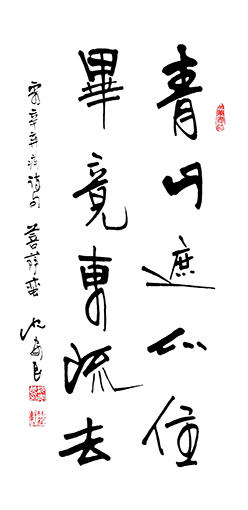 青山遮不住
畢竟東流去
寫辛弃疾詩句 菩薩蠻